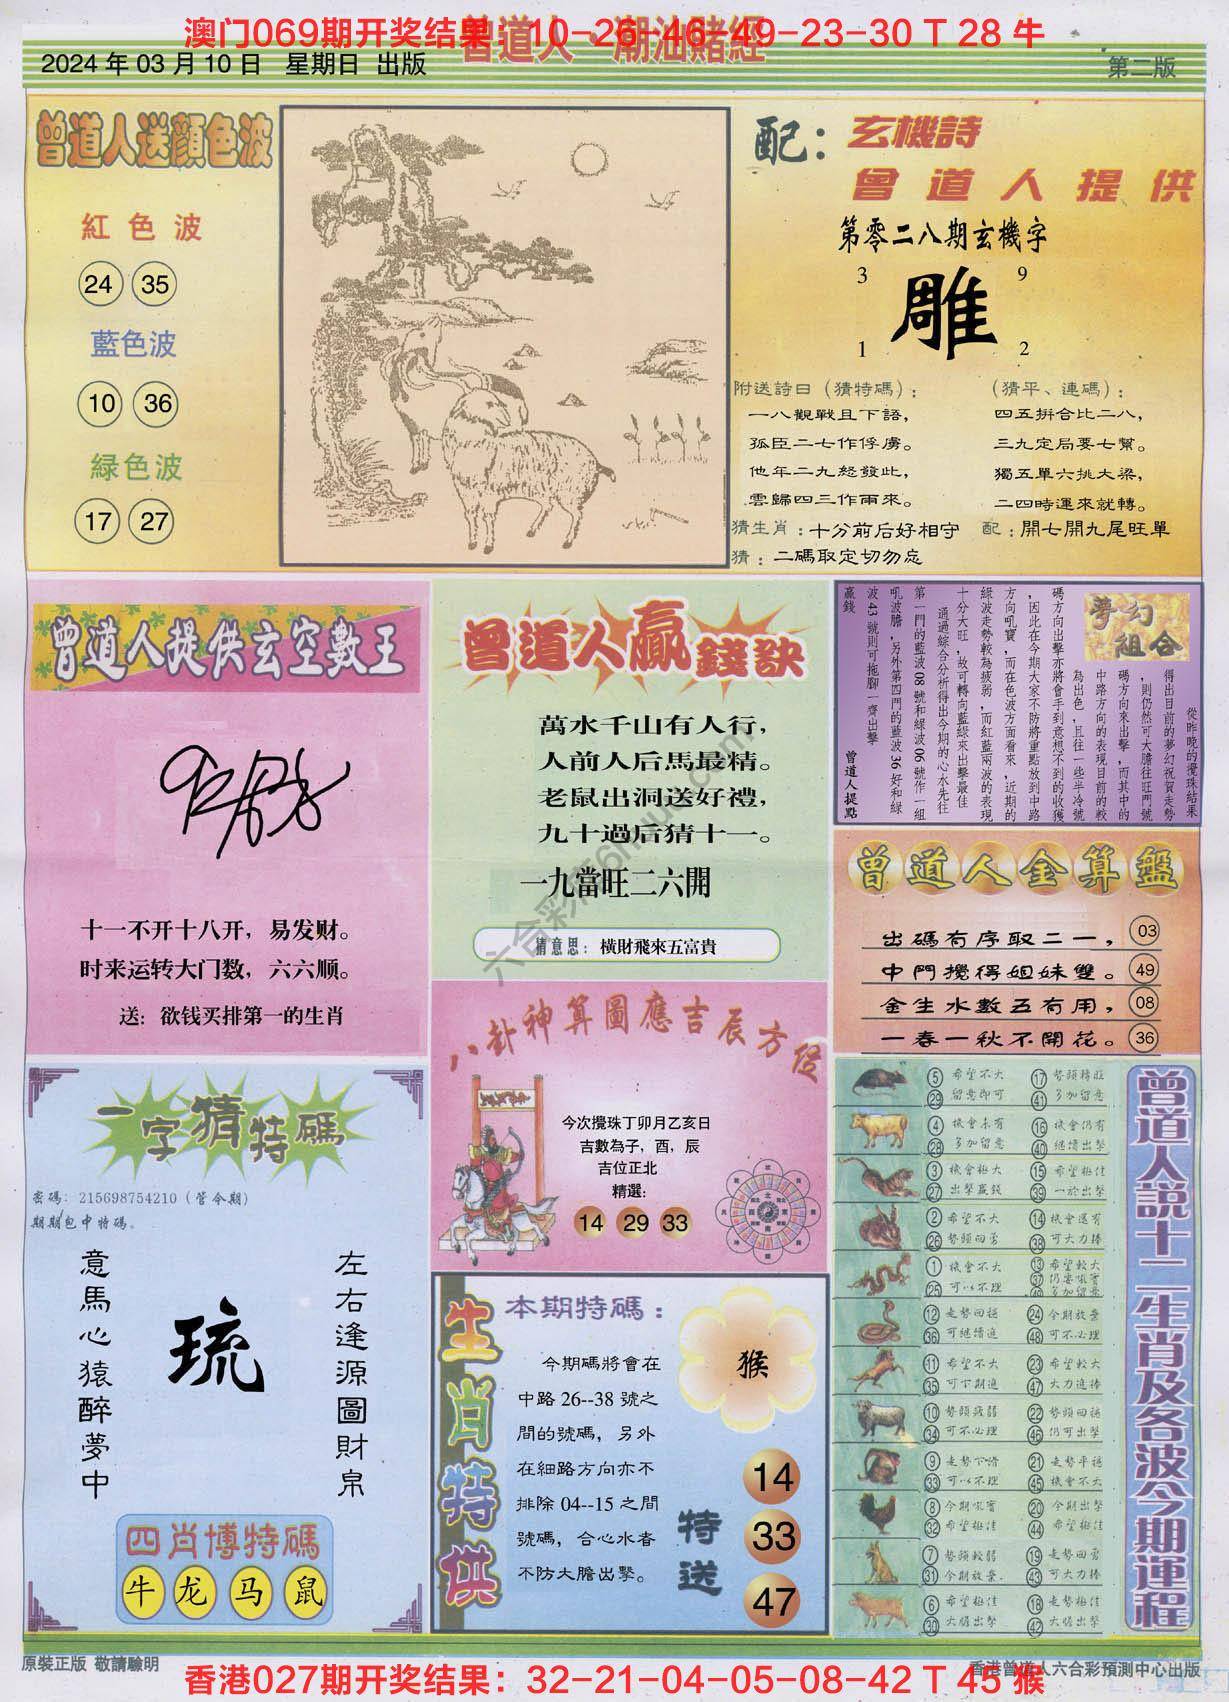 澳门069期开奖结果：10-26-46-49-23-30 T 28 牛
曾道人·潮汕賭經
2024 年 03 月 10 日 星期日 出版
第二版
曾道人送顔色波
紅色波
24 35
藍色波
10 36
緑色波
17 27
配：玄機詩
曾道人提供
第零二八期玄機字
3 9
雕
1 2
附送詩曰（猜特碼）：
一八觀戰且下語，
孤臣二七作俘虜。
他年二九怒發此，
雲歸四三作雨來。
（猜平、連碼）：
四五拼合比二八，
三九定局要七幫。
獨五單六挑大梁，
二四時運來就轉。
猜生肖：十分前后好相守
配：開七開九尾旺單
猜：二碼取定切勿忘
曾道人提供玄空數王
十一不开十八开，易发财。
时来运转大门数，六六顺。
送：欲钱买排第一的生肖
曾道人贏錢訣
萬水千山有人行，
人前人后馬最精。
老鼠出洞送好禮，
九十過后猜十一。
一九當旺二六開
猜意思：橫財飛來五富貴
夢幻組合
從昨晚的攪珠結果
得出目前的夢幻祝賀走勢
，則仍然可大膽往旺門號
碼方向來出擊，而其中的
中路方向的表現目前的較
為出色，且往一些半冷號
碼方向出擊亦將會手到意想不到的收獲
，因此在今期大家不防將重點放到中路
方向吼寶，而在色波方面看來，近期的
綠波走勢較為疲弱，而紅藍兩波的表現
十分大旺，故可轉向藍綠來出擊最佳
通過綜合分析得出今期的心水先往
第一門的藍波 08 號和綠波 06 號作一組
吼波膽，另外第四門的藍波 36 好和綠
波 43 號則可拖腳一齊出擊
贏錢
曾道人提點
曾道人金算盤
出碼有序取二一， 03
中門攪得姐妹雙。 49
金生水數五有用， 08
一春一秋不開花。 36
八卦神算圖應吉辰方位
今次攪珠丁卯月乙亥日
吉數為子，酉，辰
吉位正北
精選：
14 29 33
一字猜特碼
密碼：215698754210（管今期）
期期包中特碼。
左右逢源圖財帛
琉
意馬心猿醉夢中
四肖博特碼
牛 龙 马 鼠
生肖特供
本期特碼：
猴
今期碼將會在
中路 26--38 號之
間的號碼，另外
在細路方向亦不
排除 04--15 之間
號碼，合心水者
不防大膽出擊。
特送
14
33
47
曾道人說十二生肖及各波今期運程
5 希望不大 17 勢頭轉旺
29 留意即可 41 多加留意
4 機會未有 16 機會仍有
28 多加留意 40 繼續出擊
3 機會極大 15 希望極佳
27 出擊贏錢 39 一於出擊
2 希望不大 14 機會還有
26 勢頭回勇 38 可大力捧
1 機會不大 13 希望較大
25 可以不理 37
12 走勢回穩 24 今期放棄
36 可繼續追 48 可不必理
11 希望不大 23 希望較大
35 可下期追 47 大力追捧
10 勢頭疲弱 22 勢頭回穩
34 可不必理 46 仍可出擊
9 走勢下滑 21 走勢平穩
33 可以不理 45 機會不大
8 今期吼寶 20 今期出擊
32 希望極佳 44 希望極佳
7 勢頭較弱 19 走勢回勇
31 今期放棄. 43 可大力捧
6 希望極佳 18 走勢極佳
30 大膽出擊 42 大膽出擊
原裝正版 敬請驗明
香港曾道人六合彩預測中心出版
香港027期开奖结果：32-21-04-05-08-42 T 45 猴